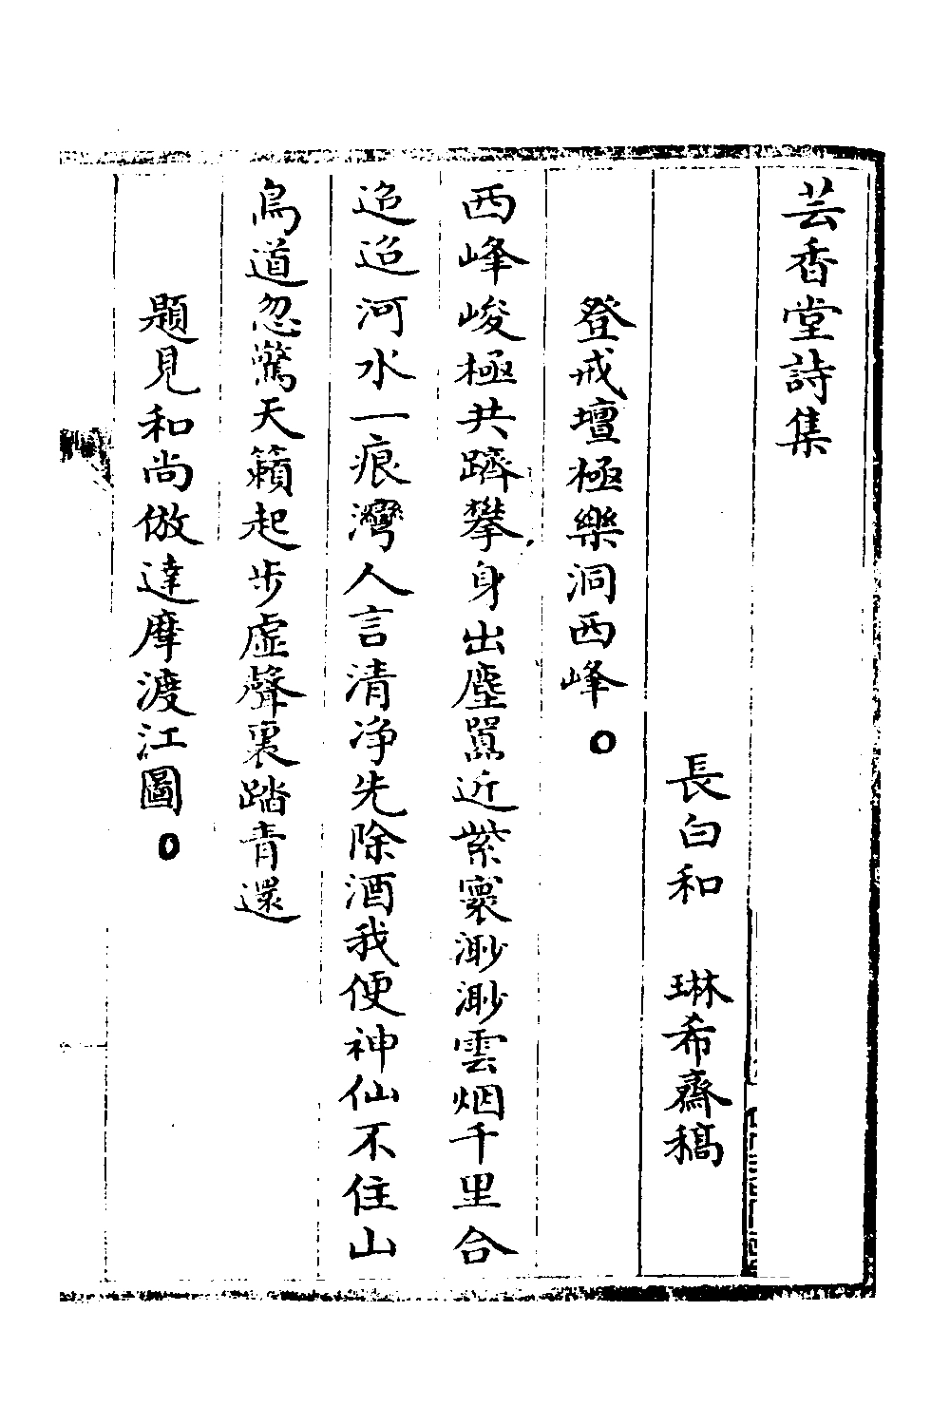 芸香堂詩集
長白和　琳希齋稿
登戒壇極樂洞西峰○
西峰峻極共躋攀身出塵囂近紫寰渺渺雲烟千里合
迢迢河水一痕灣人言清净先除酒我便神仙不住山
鳥道忽驚天籟起步虛聲裏踏青還
題見和尚倣達摩渡江圖○